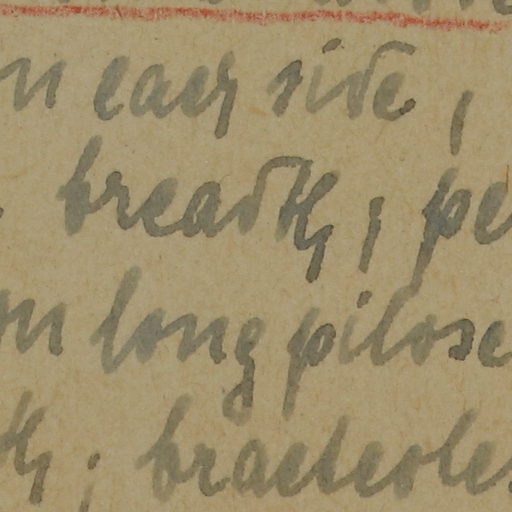 n each side,
breadth; pe
m long pilose
th; bracteoles